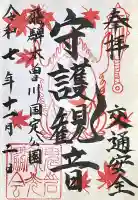 奉拝
交通安全
守護観音
飛騨木曽川国定公園
令和七年十一月二日